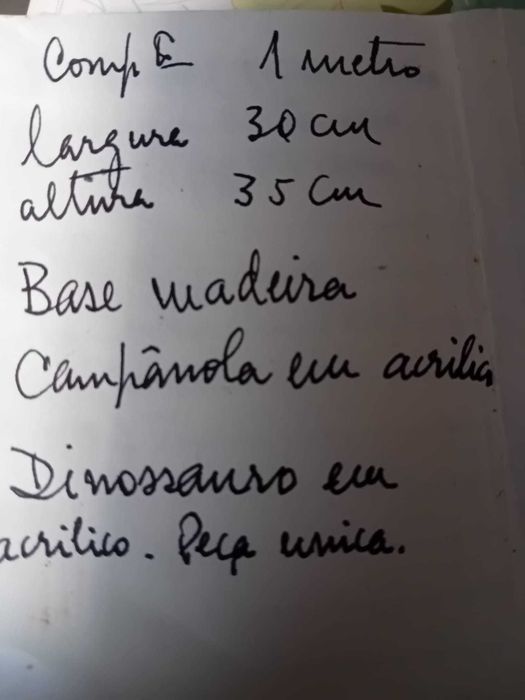 Comp E 1 metro
largura 30 cm
altura 35 cm
Base madeira
Campânola em acrilico
Dinossauro em
acrilico. Peça unica.